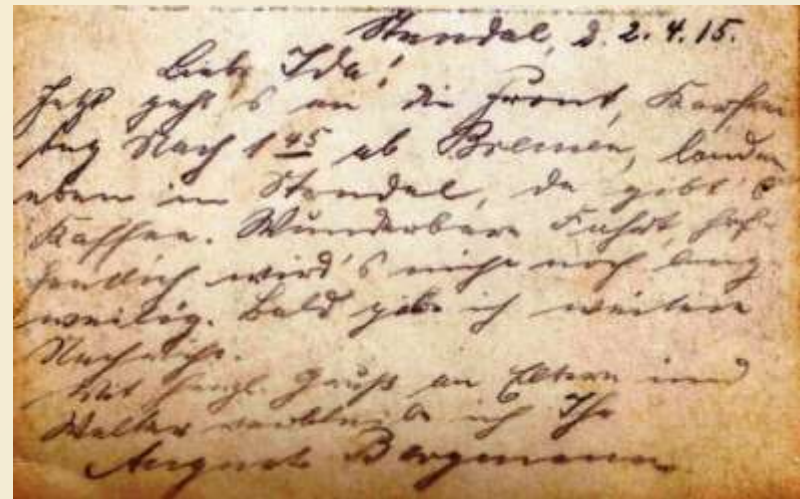 Stendal, d. 2. 4. 15.
Liebe Ida!
Jetzt geht's an die Front, Karfrei
tag Nach 1 45 ab Bremen, landen
eben in Stendal, da gibt's
Kaffee. Wunderbare Fahrt, hof-
fentlich wird's nicht noch lang
weilig. Bald gebe ich weitere
Nachricht.
Mit herzl. Gruß an Eltern und
Walter verbleibe ich Ihr
August Bergmann